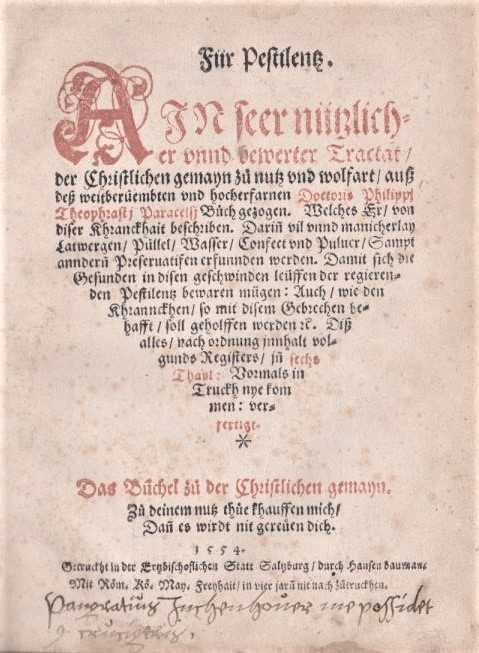 Für Pestilentz.
AIN seer nützlich-
er vnnd bewerter Tractat /
der Christlichen gemayn zů nutz vnd wolfart / auß
deß weytberüembten vnd hocherfarnen Doctoris Philippi
Theophrasti Paracelsi Bůch gezogen. Welches Er / von
diser Khranckhait beschriben. Darin̄ vil vnnd manicherlay
Latwergen / Püllel / Wasser / Confect vnd Puluer / Sampt
anndern̄ Preseruatifen erfunnden werden. Damit sich die
Gesunden in disen geschwinden leüffen der regieren-
den Pestilentz bewaren mügen: Auch / wie den
Khranncken / so mit disem Gebrechen be-
hafft / soll geholffen werden ꝛc. Diß
alles / nach ordnung innhalt vol-
gunds Registers / jn̄ sechs
Thayl: Vormals in
Truckh nye kom
men: ver-
fertigt.
*
Das Bůchel zů der Christlichen gemayn.
Zů deinem nutz thůe khauffen mich /
Dan̄ es wirdt nit gereüen dich.
1554.
Getruckht in der Ertzbischoflichen Statt Saltzburg / durch Hansen bauman.
Mit Röm. Kö. May. Freyhait / in vier jarn̄ nit nach zůtruckhen.
me possidet